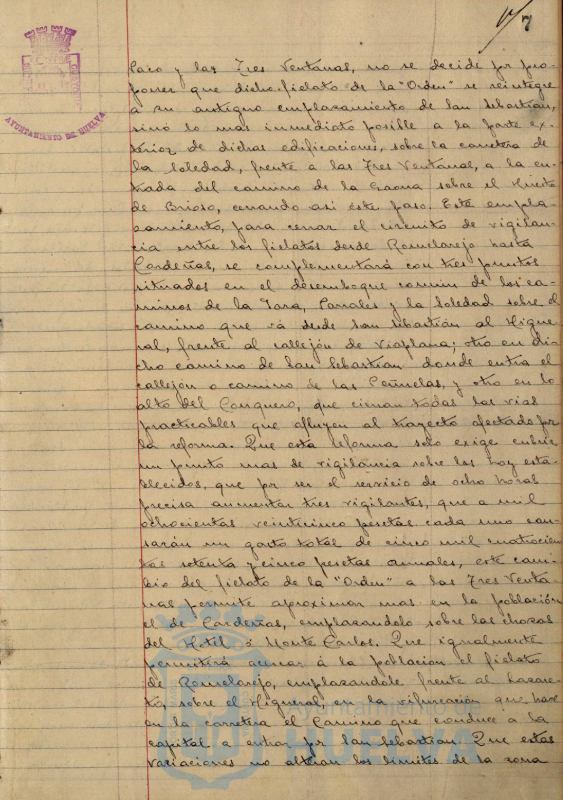 7
AYUNTAMIENTO DE HUELVA
Paco y las Tres Ventanas, no se decide por pro-
poner que dicho fielato de la "Orden" se reintegre
a su antiguo emplazamiento de San Sebastián,
sinó lo mas inmediato posible a la parte ex-
terior de dichas edificaciones, sobre la carretera de
la Soledad, frente a las Tres Ventanas, a la en-
trada del camino de la sobre el Huerto
de Brioso, cerrando asi este paso. Este empla-
zamiento, para cerrar el circuito de vigilan-
cia entre los fielatos desde Romelarejo hasta
Cardeñas, se complementará con tres puntos
situados en el desemboque comun de los ca-
minos de la Jara, y la Soledad sobre el
camino que vá desde San Sebastián al Higue-
ral, frente al callejón de Viaplana; otro en di-
cho camino de San Sebastian donde entra el
callejón o camino de las y otro en lo
alto del Conquero, que cierran todas las vias
practicables que afluyen al trayecto afectado por
la reforma. Que esta reforma solo exige cubrir
un punto mas de vigilancia sobre los hoy esta-
blecidos, que por ser el servicio de ocho horas
precisa aumentar tres vigilantes, que a mil
ochocientas veinticinco pesetas cada uno cau-
sarán un gasto total de cinco mil cuatrocien
tas setenta y cinco pesetas anuales, este cam-
bio del fielato de la "Orden" a las Tres Venta-
nas permite aproximar mas en la población
el de Cardeñas, emplazandolo sobre las chozas
del Hotel ó Monte Carlos. Que igualmente
permitirá acercar á la población el fielato
de Romelarejo, emplazandole frente al Lazare-
to, sobre el Higueral, en la bifurcación que hace
en la carretera el Camino que conduce a la
capital a entrar por San Sebastian. Que estas
variaciones no alteran los limites de la zona
Ayuntamiento de
HUELVA